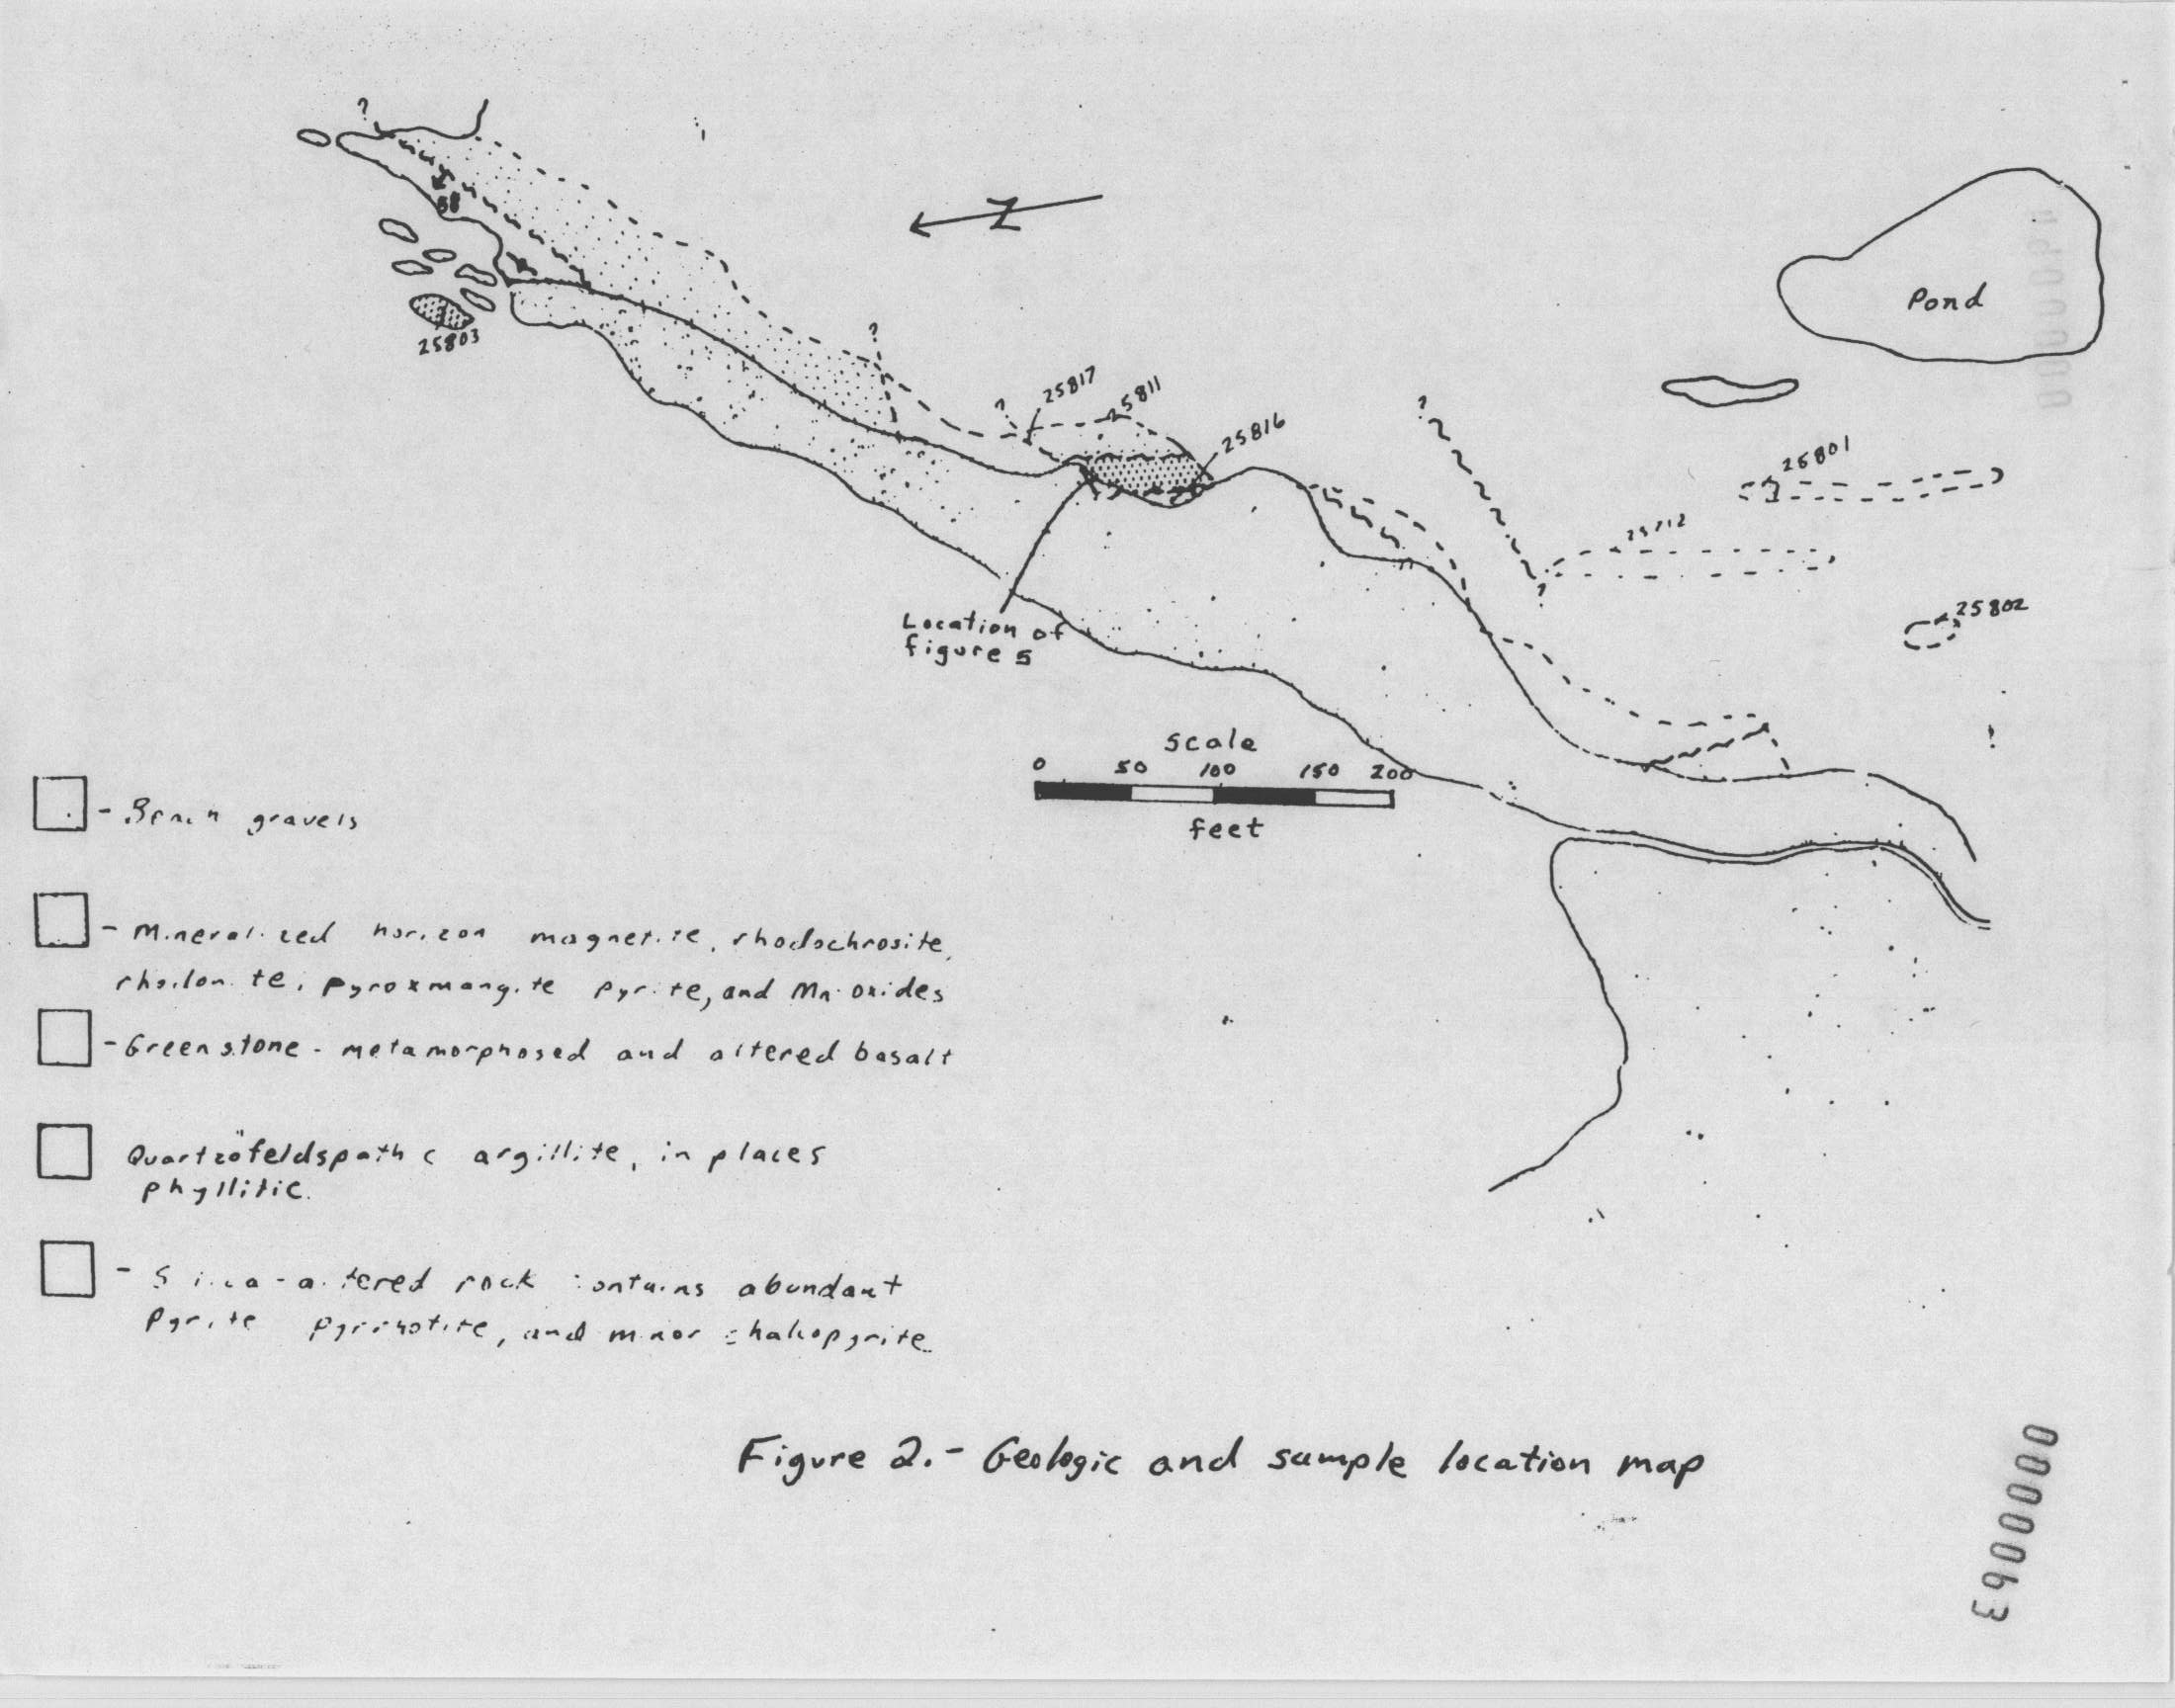 ?
58
25803
Z
?
?
25817
25811
25816
?
?
Pond
25801
25712
25802
Location of
figure 5
Scale
0 50 100 150 200
feet
gravels
- Mineralized horizon magnetite, rhodochrosite,
pyroxmangite pyrite, and Mn oxides
- Greenstone - metamorphosed and altered basalt
Quartzofeldspathic argillite, in places
phyllitic.
- rock contains abundant
pyrite pyrrhotite, and minor chalcopyrite
Figure 2.- Geologic and sample location map
00000063